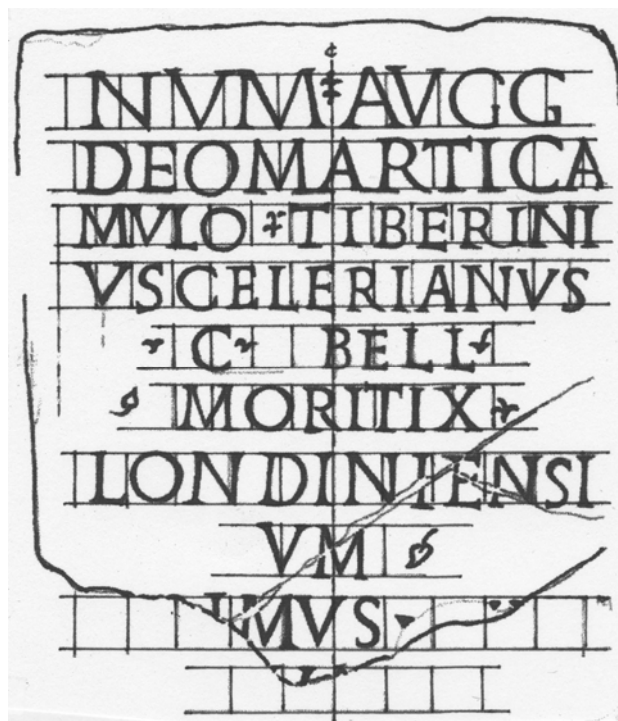 NVM AVGG
DEOMARTICA
MVLO TIBERINI
VSCELERIANVS
C BELL
MORITIX
LONDINIENSI
VM
IMVS